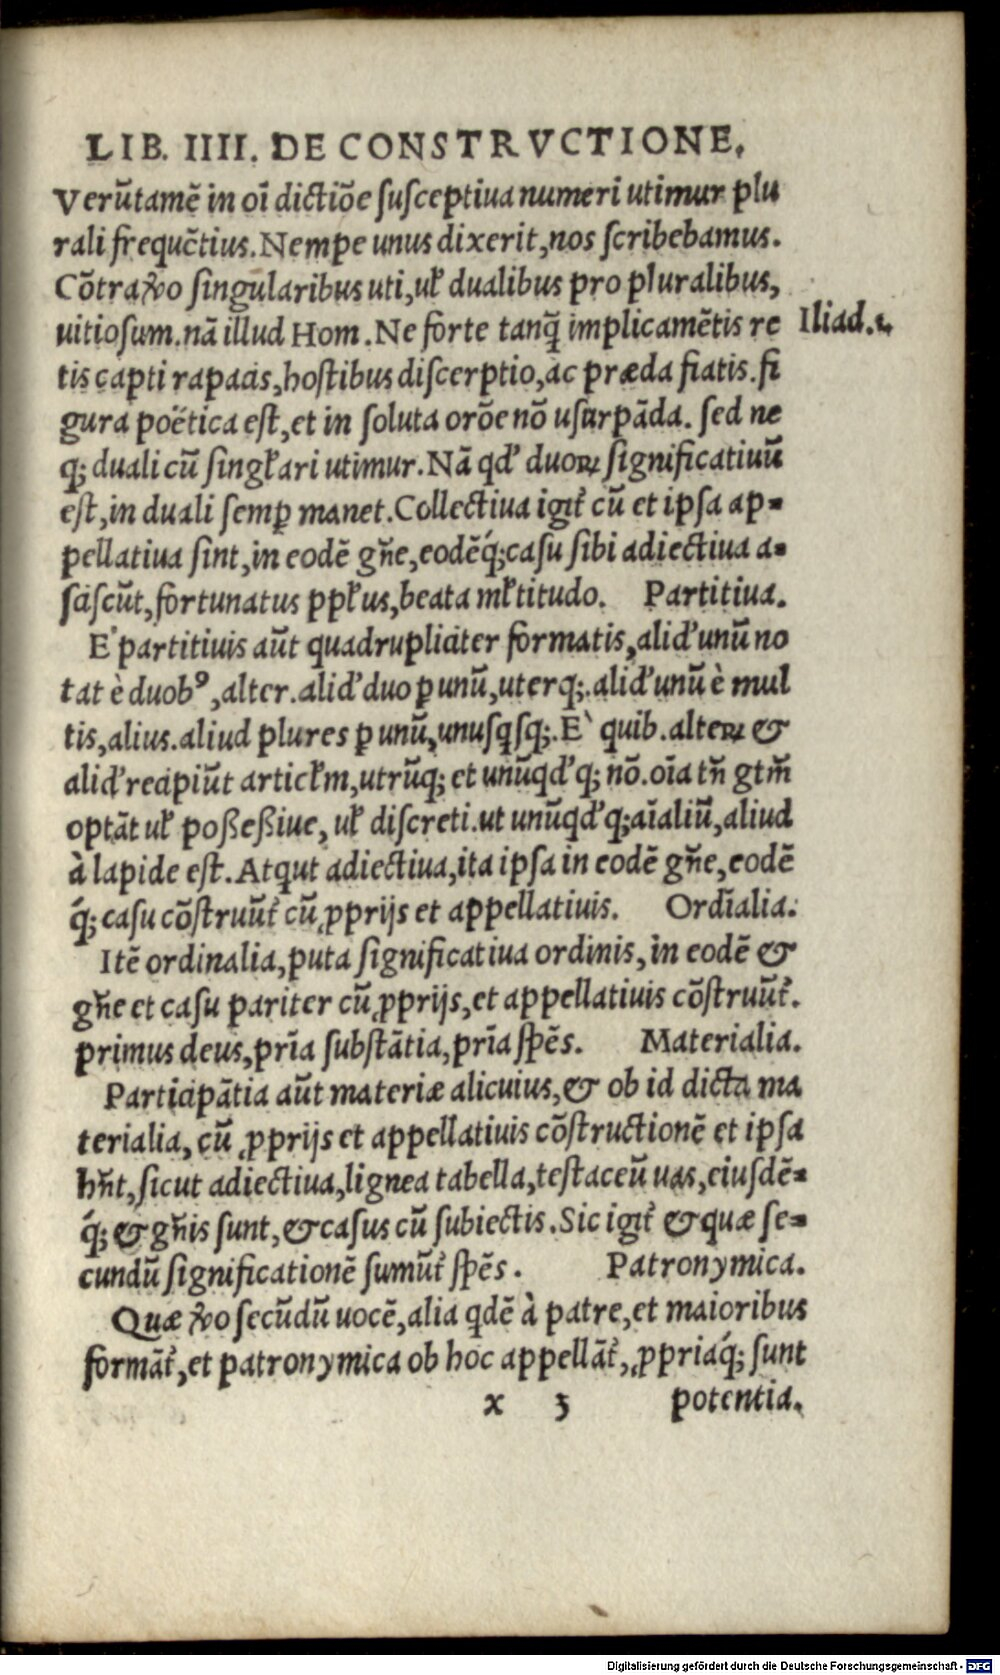 LIB. IIII. DE CONSTRVCTIONE.
Verũtamẽ in oĩ dictiõe ſuſceptiua numeri utimur plu
rali frequẽtius. Nempe unus dixerit, nos ſcribebamus.
Cõtra ꝟo ſingularibus uti, uł dualibus pro pluralibus,
uitioſum. nã illud Hom. Ne forte tanq̃ implicamẽtis re
Iliad. ε.
tis capti rapacis, hoſtibus diſcerptio, ac præda fiatis. fi
gura poëtica eſt, et in ſoluta orõe nõ uſurpãda. ſed ne
q; duali cũ ſingłari utimur. Nã qď duoꝝ ſignificatiuũ
eſt, in duali ſemp̱ manet. Collectiua igit̃ cũ et ipſa ap-
pellatiua ſint, in eodẽ gñe, eodẽq́; caſu ſibi adiectiua a-
ſciſcũt, fortunatus ppłus, beata młtitudo. Partitiua.
E' partitiuis aũt quadrupliciter formatis, aliď unũ no
tat è duobꝰ, alter. aliď duo ꝑ unũ, uterq;. aliď unũ è mul
tis, alius. aliud plures ꝑ unũ, unuſqſq;. E` quib. alteꝝ &
aliď recipiũt articłm, utrũq; et unũqď q; nõ. oĩa tñ gtm̃
optãt uł poßeßiue, uł diſcreti. ut unũqď q; aĩaliũ, aliud
à lapide eſt. Atqut adiectiua, ita ipſa in eodẽ gñe, eodẽ
q́; caſu cõſtruũt̃ cũ ꝓprijs et appellatiuis. Ordĩalia.
Itẽ ordinalia, puta ſignificatiua ordinis, in eodẽ &
gñe et caſu pariter cũ ꝓprijs, et appellatiuis cõſtruũt̃.
primus deus, prĩa ſubſtãtia, prĩa ſpẽs. Materialia.
Participãtia aũt materiæ alicuius, & ob id dicta ma
terialia, cũ ꝓprijs et appellatiuis cõſtructionẽ et ipſa
hñt, ſicut adiectiua, lignea tabella, teſtaceũ uas, eiuſdẽ-
q́; & gñis ſunt, & caſus cũ ſubiectis. Sic igit̃ & quæ ſe-
cundũ ſignificationẽ ſumũt̃ ſpẽs. Patronymica.
Quæ ꝟo ſecũdũ uocẽ, alia qdẽ à patre, et maioribus
formãt̃, et patronymica ob hoc appellãt̃, ꝓpriaq́; ſunt
x 3 potentia.
Digitalisierung gefördert durch die Deutsche Forschungsgemeinschaft - DFG